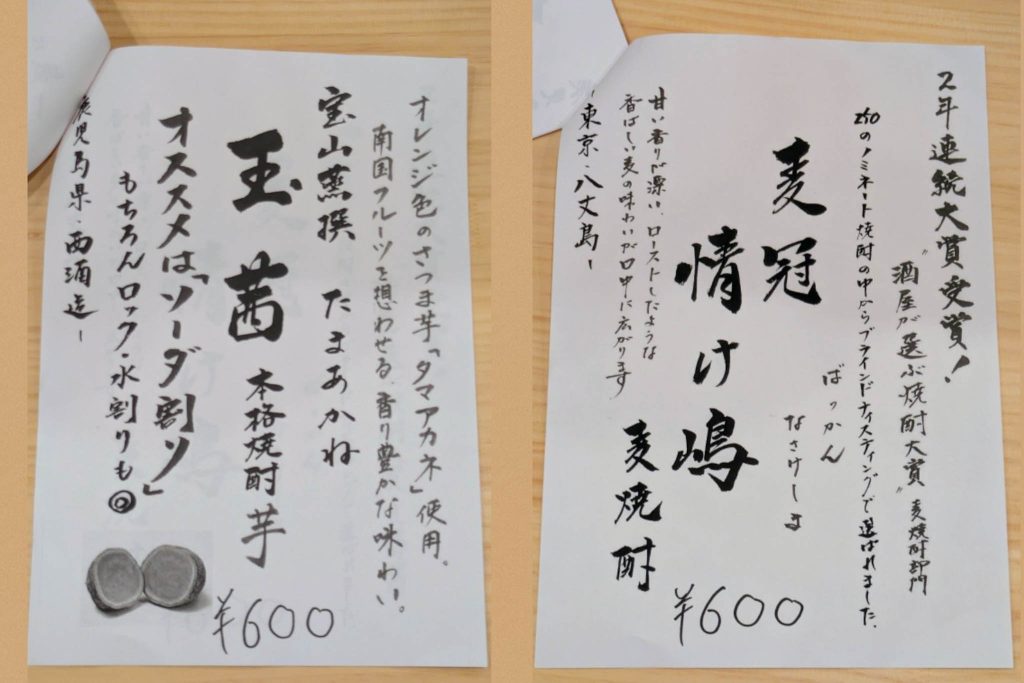 オレンジ色のさつま芋「タマアカネ」使用。
南国フルーツを想わせる、香り豊かな味わい。
宝山蒸撰 たまあかね
玉茜 本格焼酎 芋
オススメは「ソーダ割り」
もちろんロック・水割りも◎
鹿児島県・西酒造ー
¥600
2年連続大賞受賞!
"酒屋が選ぶ焼酎大賞" 麦焼酎部門
250のノミネート焼酎の中からブラインドテイスティングで選ばれました。
ばっかん
なさけしま
麦冠
情け嶋
麦焼酎
甘い香りが漂い、ローストしたような
香ばしい麦の味わいが口中に広がります
東京・八丈島ー
¥600